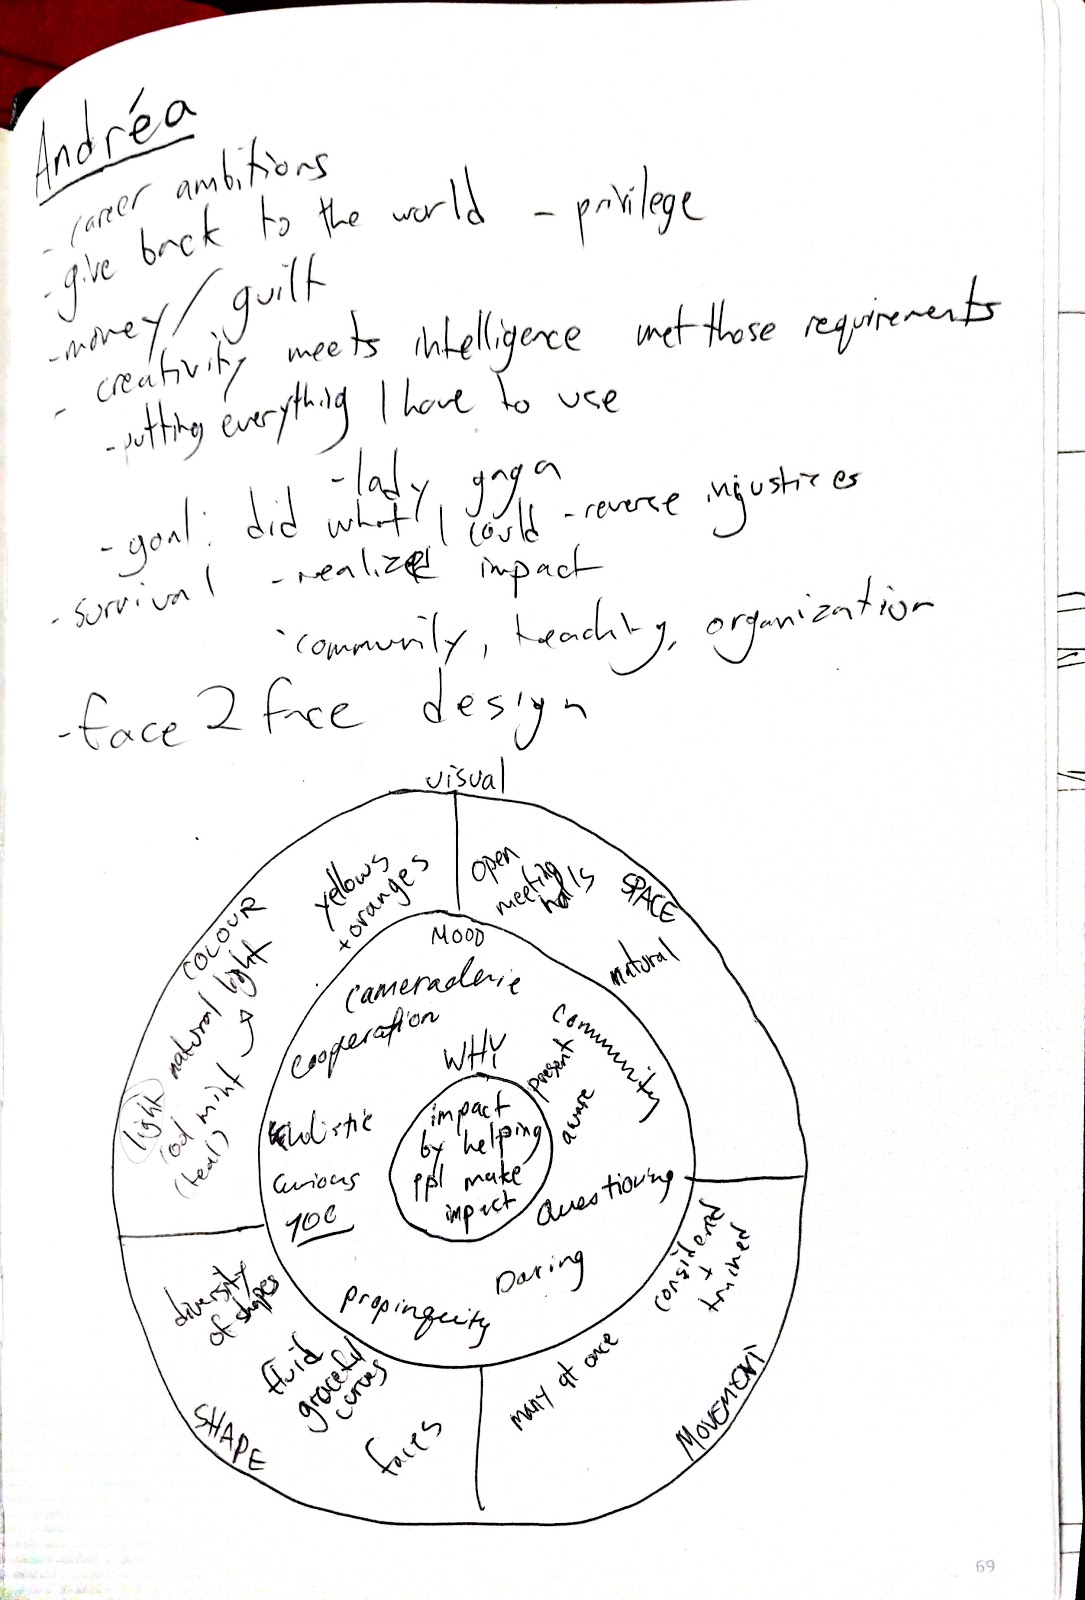 Andréa
- career ambitions
- give back to the world - privilege
- money/guilt
- creativity meets intelligence met those requirements
- putting everything I have to use
- lady gaga
- goal: did what I could - reverse injustices
- survival - realized impact
community, teaching, organization
- face 2 face design
visual
COLOUR
yellows
+ oranges
natural light
light
(teal)
SPACE
open
meeting
halls
natural
MOOD
cameraderie
cooperation
community
present
aware
holistic
curious
YOE
Questioning
Daring
propinquity
WHY
impact
by helping
ppl make
impact
SHAPE
diversity
of shapes
fluid
graceful
curves
faces
MOVEMENT
considered
+
trained
many at once
69